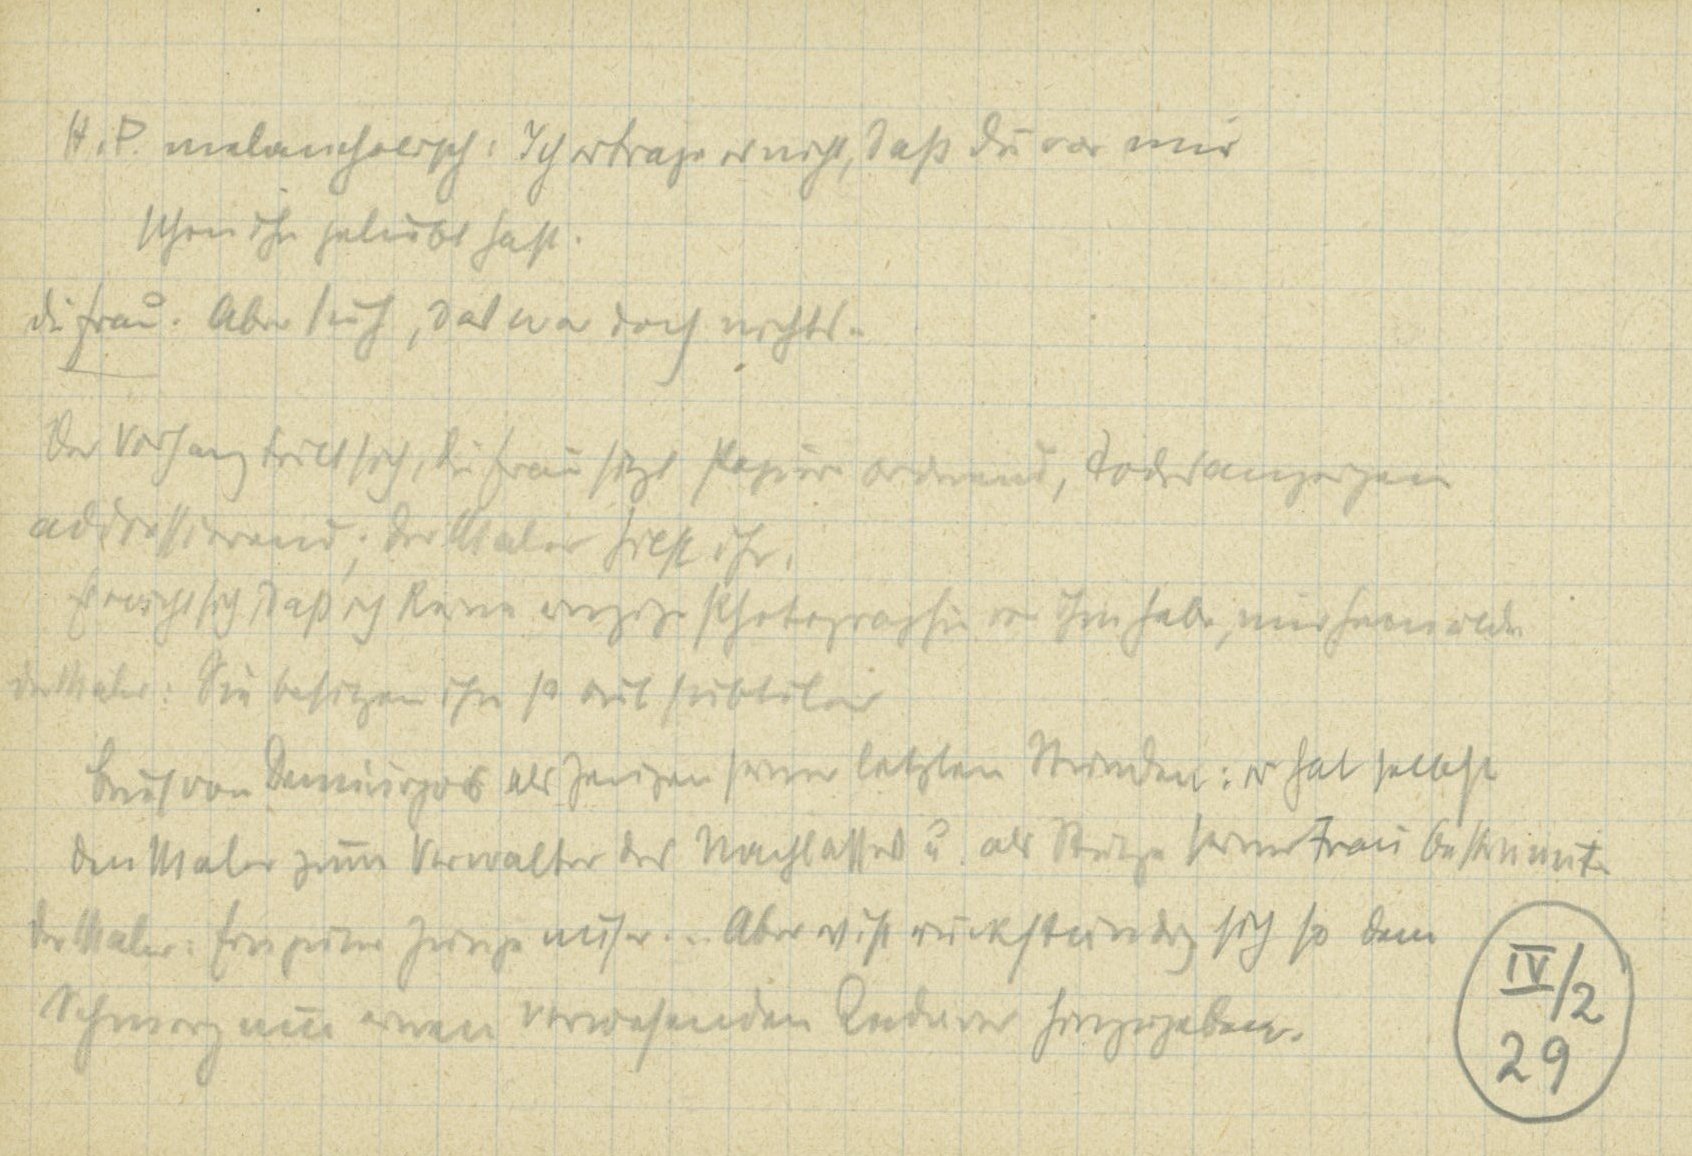 H. P. melancholisch: Ich ertrage es nicht, daß du vor mir
schon ihn geliebt hast.
die Frau. Aber sieh, das war doch nichts.
Der Vorhang teilt sich, die Frau sitzt Papiere ordnend, Todesanzeigen
addressierend; der Maler hilft ihr.
daß ich keine einzige Photographie von ihm habe,
der Maler: Sie besitzen ihn so viel subtiler
von Demiurgos als seiner letzten Stunden: er hat selbst
den Maler zum Verwalter des Nachlasses u. als Stütze seiner Frau bestimmt.
der Maler: Ein guter Junge .. Aber es ist rückständig sich so dem
Schmerz um einen verwesenden Kadaver hinzugeben.
IV/2
29